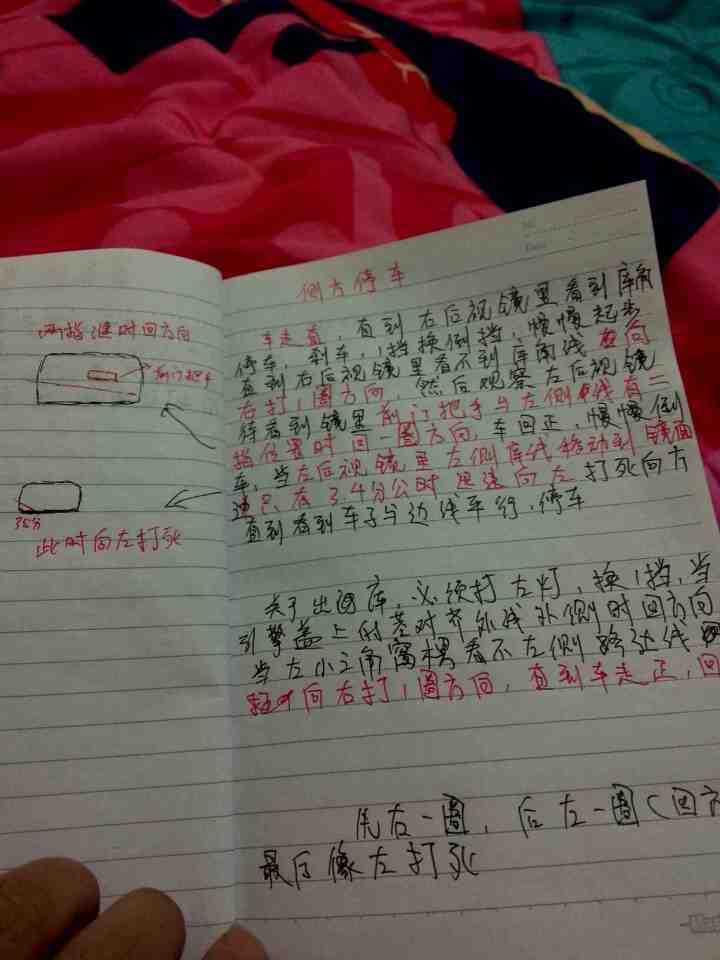 侧方停车
车走直，直到右后视镜里看到库角
停车，刹车，1挡换倒挡，慢慢起步
直到右后视镜里看不到库角线 在向
右打1圈方向，然后观察左后视镜
待看到镜里前门把手与左侧 线有二
指位置时回一圈方向，车回正，慢慢倒
车，当左后视镜里左侧库线移动到镜面
边只有3.4分公时 迅速向左打死向方
直到看到车子与边线平行，停车
关于出 库，必须打左灯，换1挡，当
引擎盖上的 对齐外线外侧时回方向
当左小三角窗 看不左侧路边线
向右打1圈方向，直到车走正，回
先右一圈，后左一圈（回方
最后像左打死
两指 时回方向
前门把手
3.4分
此时向左打死
No.
Date